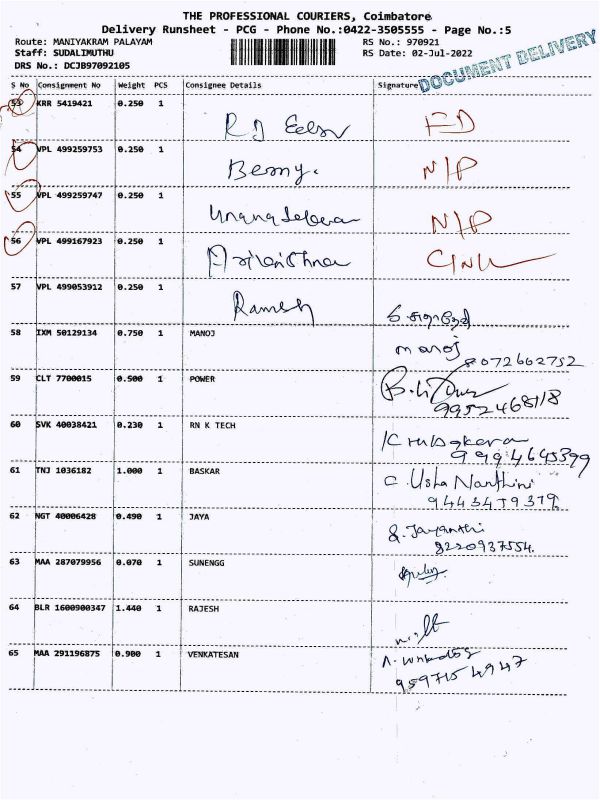 THE PROFESSIONAL COURIERS, Coimbatore
Delivery Runsheet - PCG - Phone No.:0422-3505555 - Page No.:5
Route: MANIYAKRAM PALAYAM RS No.: 970921
Staff: SUDALIMUTHU RS Date: 02-Jul-2022
DRS No.: DCJB97092105
DOCUMENT DELIVERY
S No Consignment No Weight PCS Consignee Details Signature
53 KRR 5419421 0.250 1
54 VPL 499259753 0.250 1 Bermy. N/P
55 VPL 499259747 0.250 1 N/P
56 VPL 499167923 0.250 1
57 VPL 499053912 0.250 1 Ramesh
58 IXM 50129134 0.750 1 MANOJ manoj
8072602752
59 CLT 7700015 0.500 1 POWER
9952468118
60 SVK 40038421 0.230 1 RN K TECH
9994645399
61 TNJ 1036182 1.000 1 BASKAR C. Usha Nanthini
9443459319
62 NGT 40006428 0.490 1 JAYA S. Jayanthi
8220937554.
63 MAA 287079956 0.070 1 SUNENGG
64 BLR 1600900347 1.440 1 RAJESH
65 MAA 291196875 0.900 1 VENKATESAN
9597154947